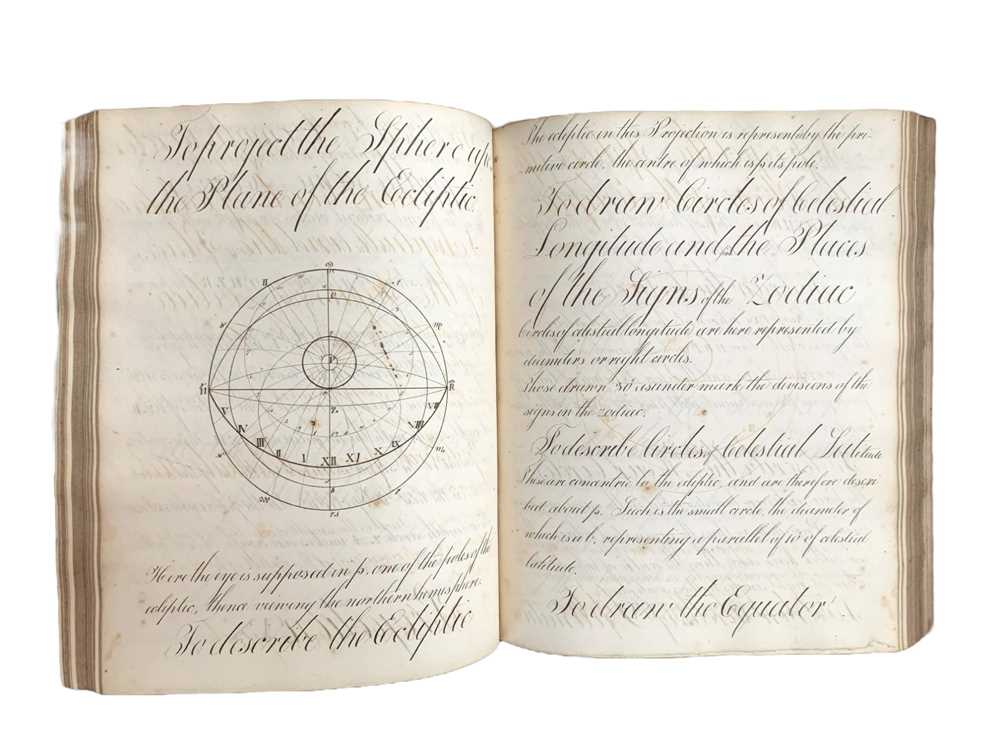 To project the Sphere upon
the Plane of the Ecliptic.
II
V
IV
III
II
I
XII
XI
X
IX
VIII
VII
Here the eye is supposed in p, one of the poles of the
ecliptic, thence viewing the northern hemisphere.
To describe the Ecliptic
The ecliptic in this Projection is represented by the pri-
mitive circle, the centre of which is p its pole.
To draw Circles of Celestial
Longitude and the Places
of the Signs of the Zodiac
Circles of celestial longitude are here represented by
diameters or right circles.
Those drawn 30° asunder mark the divisions of the
signs in the zodiac.
To describe Circles of Celestial Latitude
These are concentric to the ecliptic, and are therefore descri
bed about p. Such is the small circle, the diameter of
which is a b, representing a parallel of 10° of celestial
latitude.
To draw the Equator